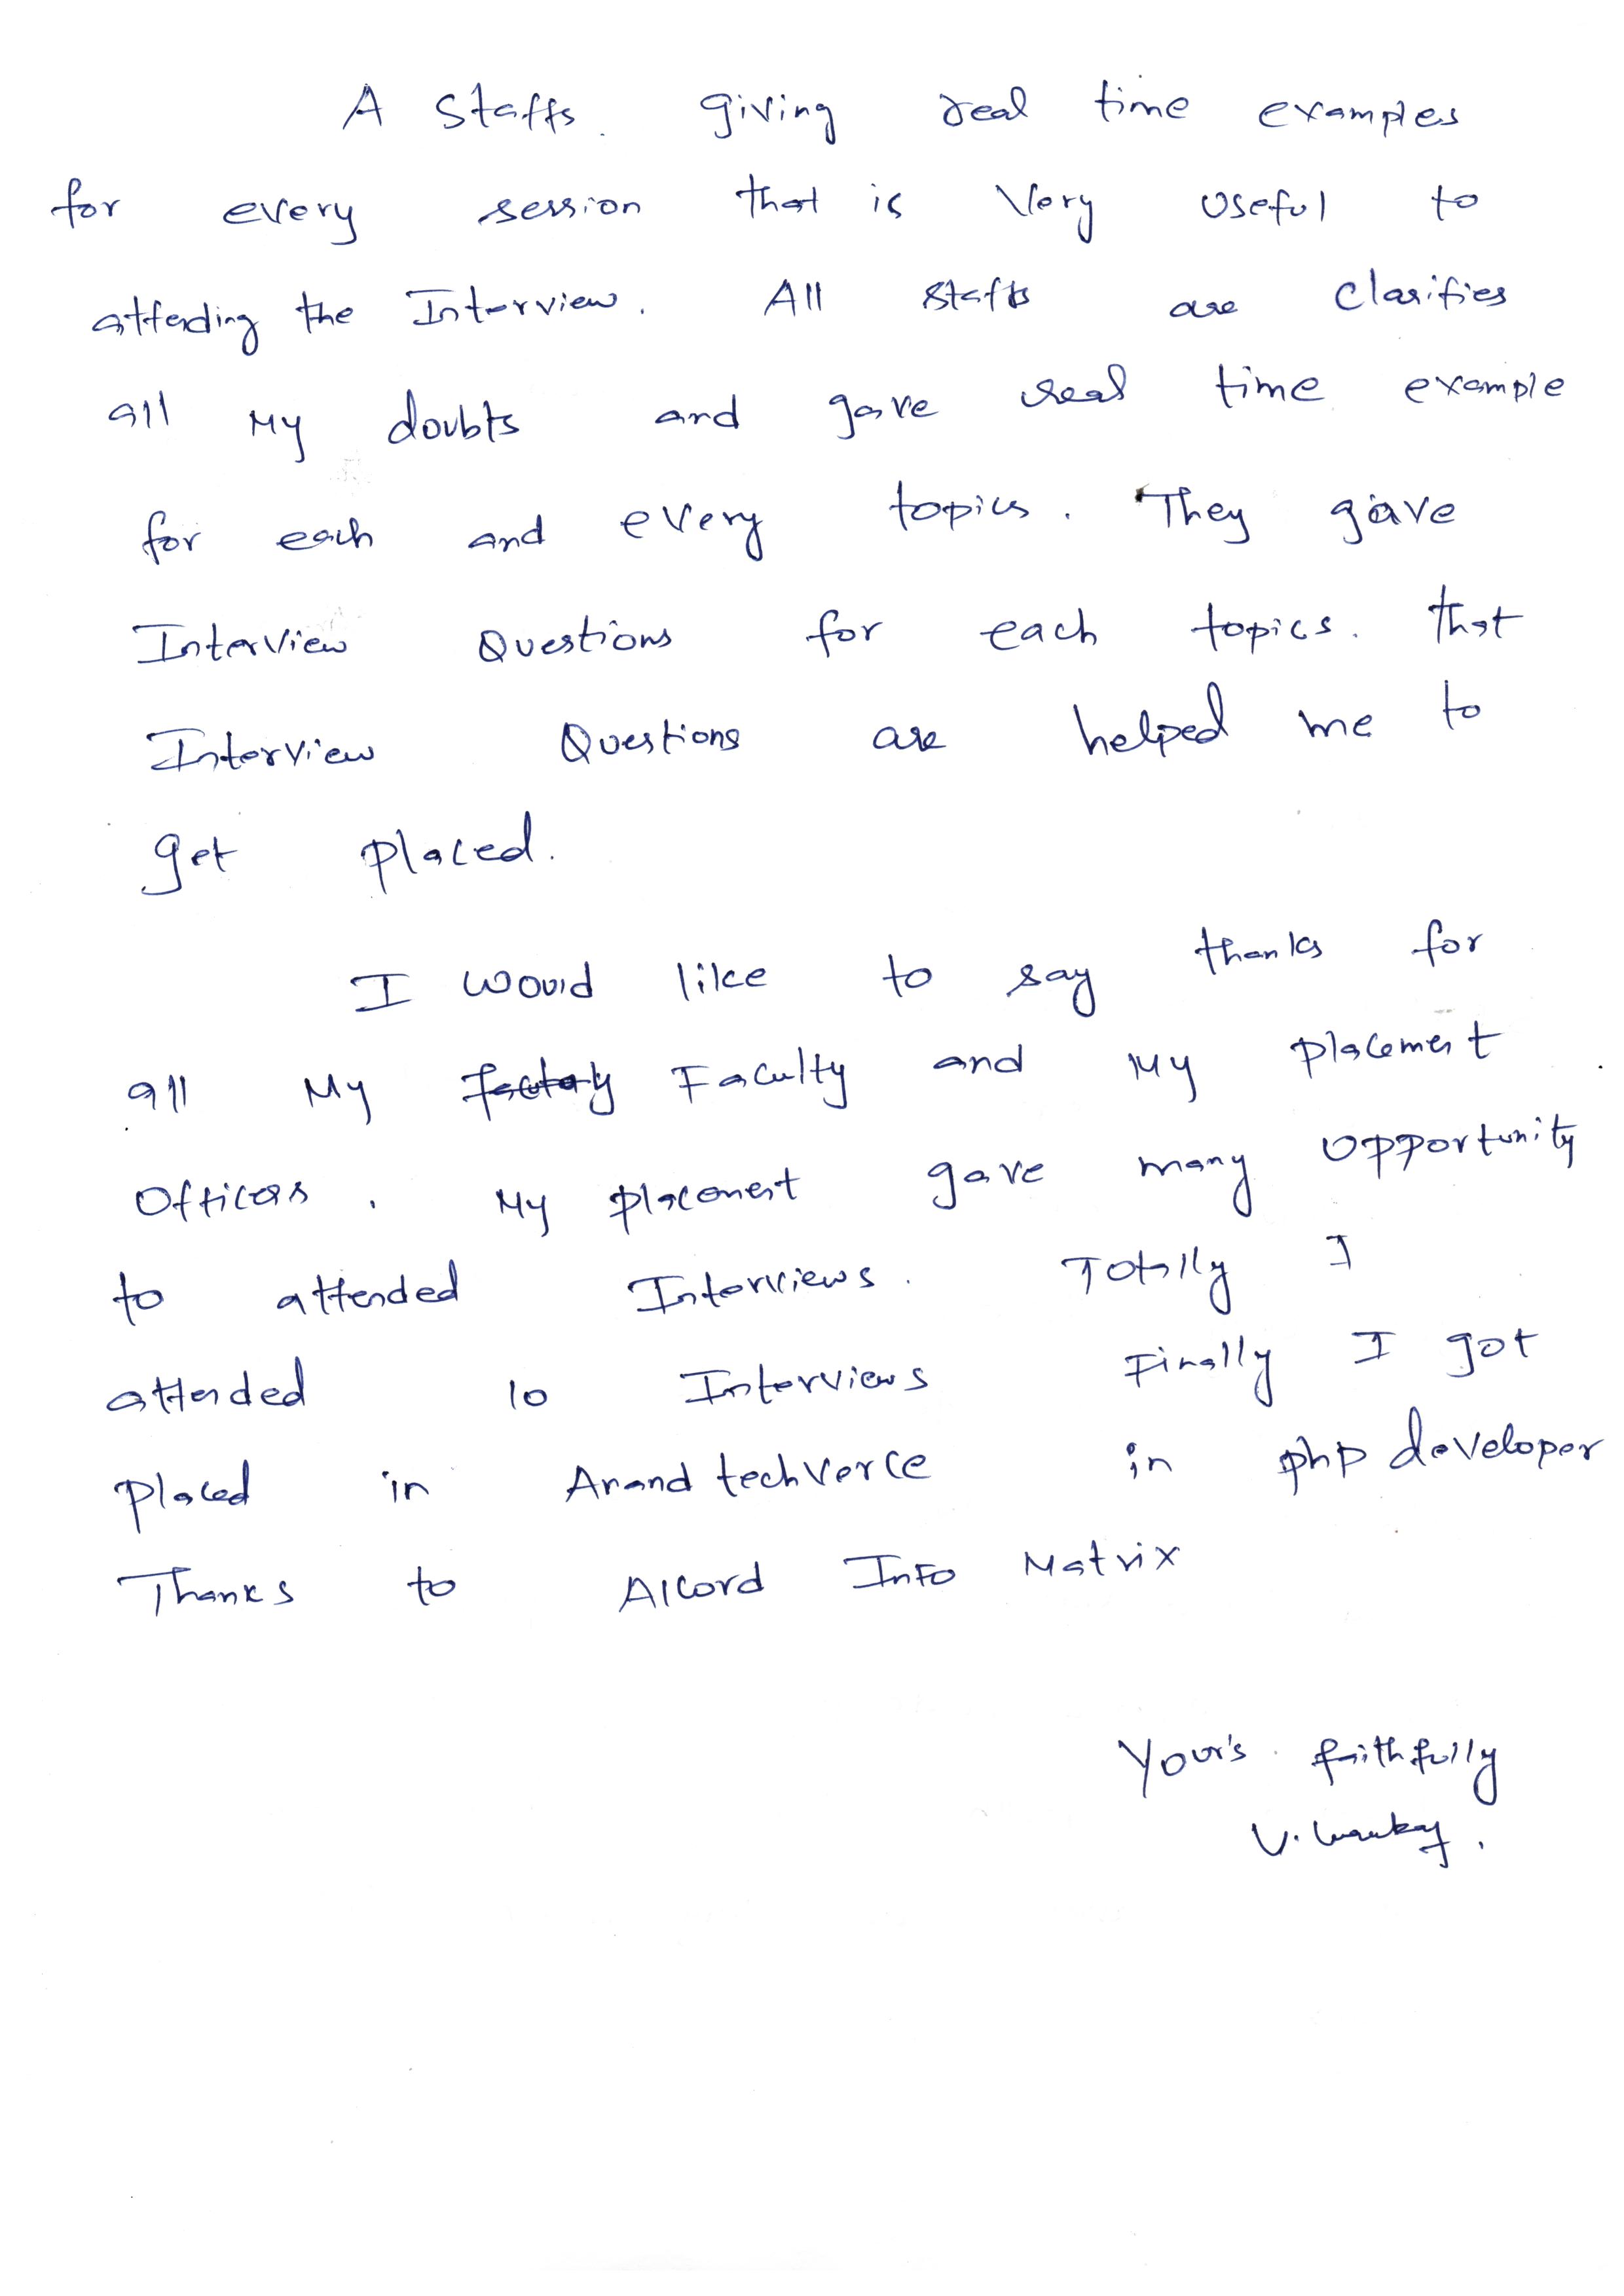 A Staffs giving real time examples
for every session that is Very Useful to
attending the Interview. All staffs are Clarifies
all My doubts and gave real time example
for each and every topics. They gave
Interview Questions for each topics. that
Interview Questions are helped me to
get placed.
I would like to say thanks for
all My Faculty and My placement
Officers. My placement gave many Opportunity
to attended Interviews. Totally I
attended 10 Interviews Finally I got
placed in Anand techVerce in php developer
Thanks to Alcord Info Matrix
Your's faithfully
V.